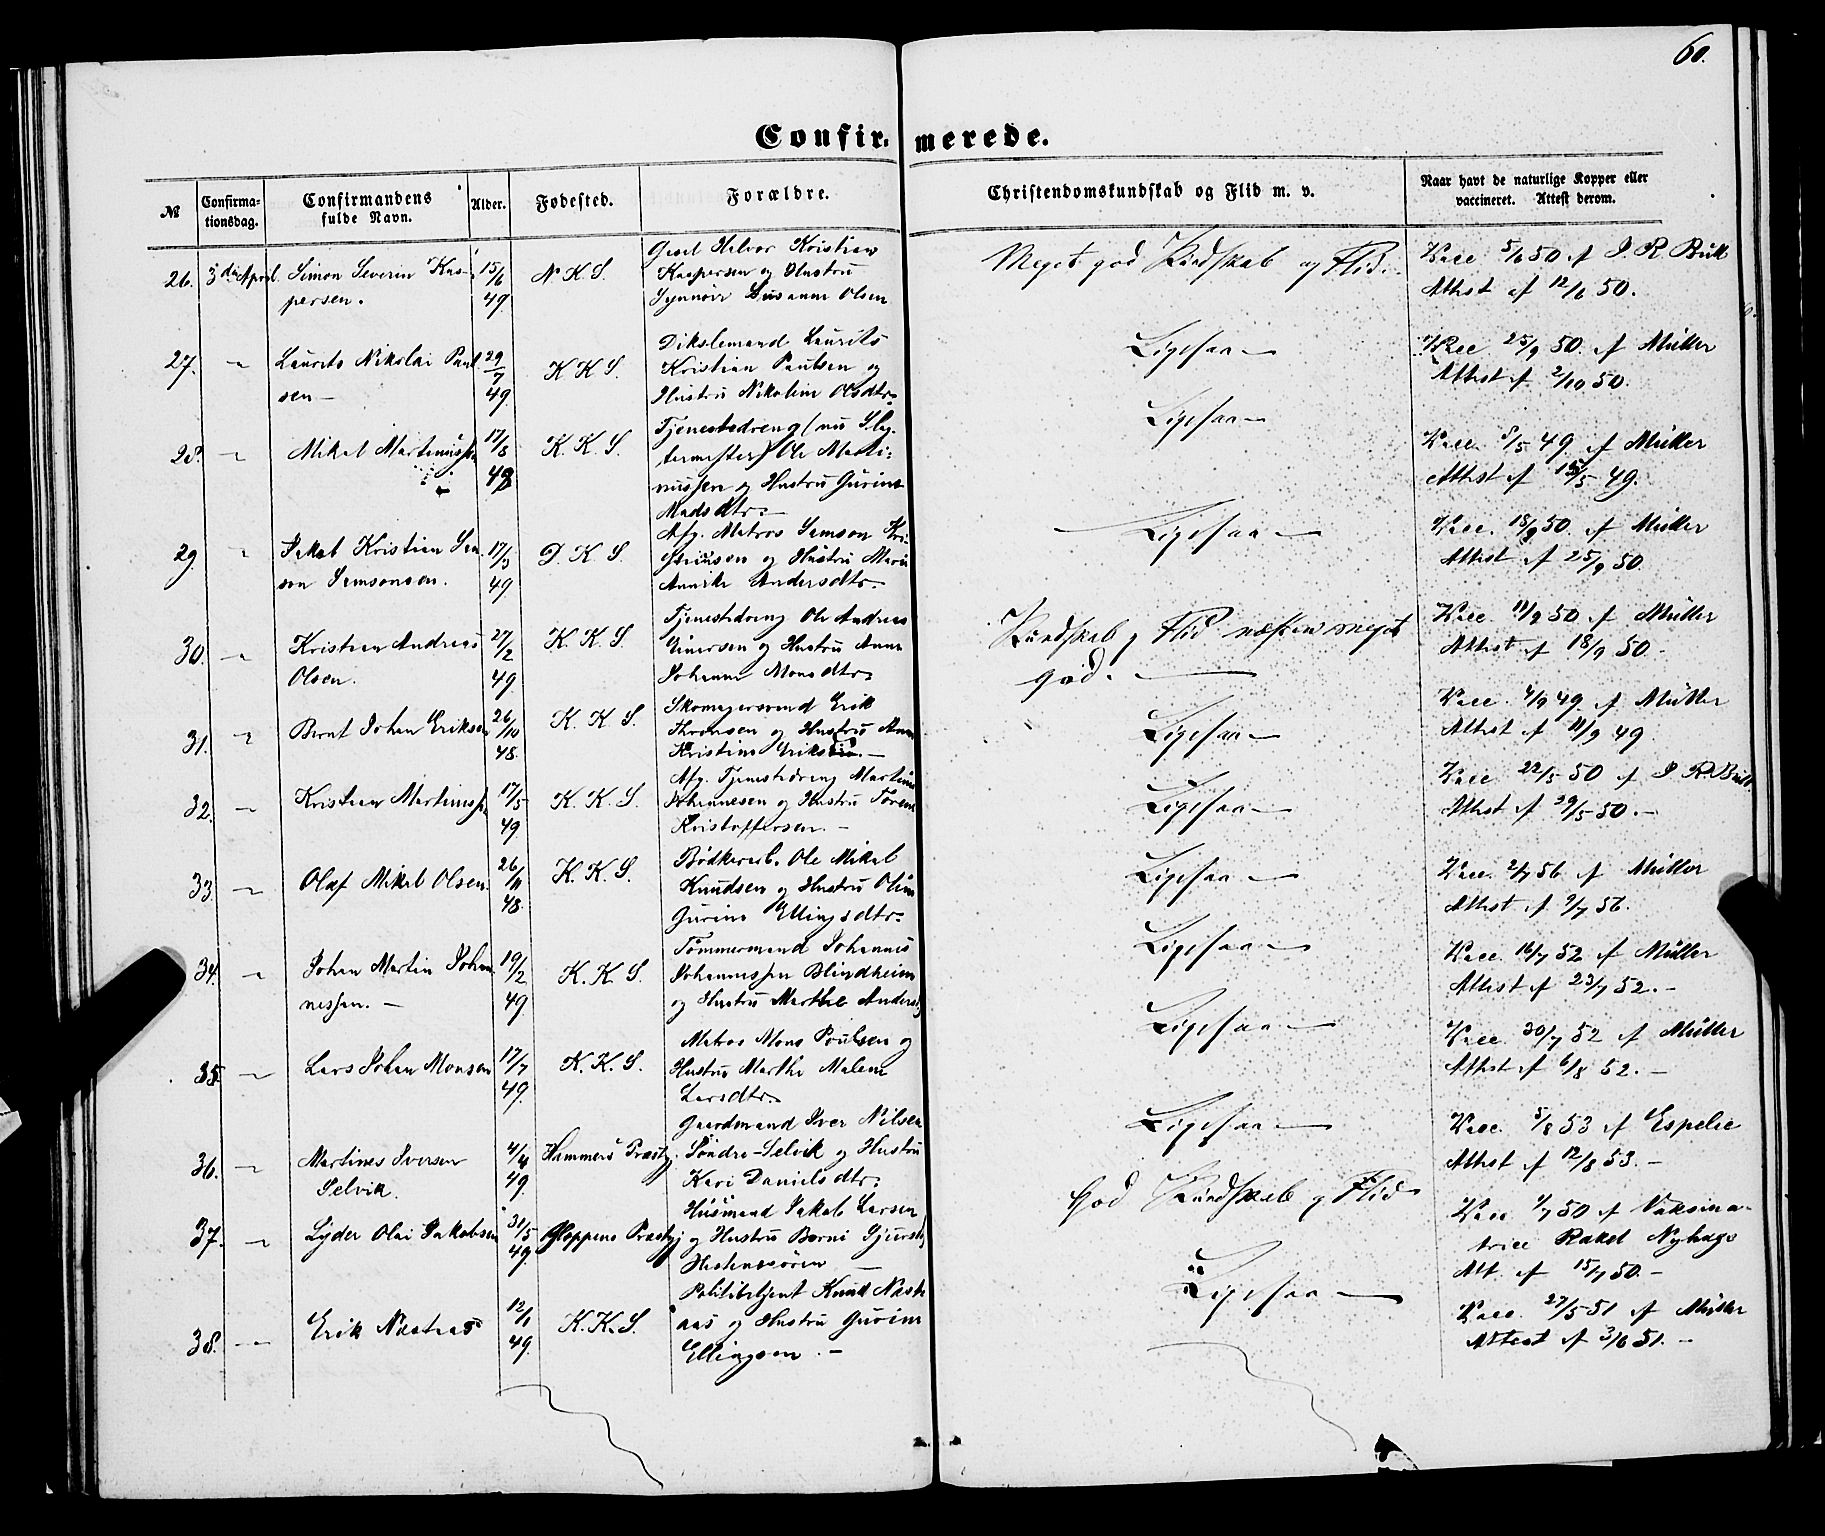 60.
Confirmerede.
№
Confirmationsdag.
Confirmandens fulde Navn.
Alder.
Fødested.
Forældre.
Christendomskundskab og Flid m. v.
Naar havt de naturlige Kopper eller vaccineret. Attest derom.
26. 3die April Simon Severin Kaspersen. 15/6 49. N. K. S. Halvor Kristian Kaspersen og Hustru Synnøve Susanne Olsen
Meget god Kundskab og Flid. Vacc. 5/6 50 af J. R. Bull Attest af 12/6 50.
27. " Laurits Nikolai Paulsen 29/7 49. K. K. S. Laurits Kristian Paulsen og Hustru Nikoline Olsdtr.
Ligesaa Vacc. 25/9 50. af Müller Attest af 2/10 50.
28. " Mikal Martinussen 17/8 48 K. K. S. Tjenestedreng (nu ) Ole Martinussen og Hustru Gurine Madsdtr.
Ligesaa Vacc. 8/5 49. af Müller Attest af 15/5 49.
29. " Jakob Kristian Samson Samsonsen. 17/3 49 D. K. S. Afg. Matros Samson og Hustru Marie Annike Andersdtr.
Ligesaa Vacc. 18/9 50. af Müller Attest af 25/9 50.
30. " Kristian Andreas Olsen. 27/2 49. K. K. S. Tjenestedreng Ole Andreas Einersen og Hustru Anne Johanne Monsdtr.
Kundskab og Flid næsten meget god. Vacc. 11/9 50. af Müller Attest af 18/9 50.
31. " Bernt Johan Eriksen 26/10 48. K. K. S. Skomagersvend Erik Thronsen og Hustru Anne Kristine
Ligesaa Vacc. 4/9 49. af Müller Attest af 11/9 49.
32. " Kristian Martinussen 17/5 49. K. K. S. Afg. Tjenestedreng Martinus Johannesen og Hustru Kristoffersen.
Ligesaa Vacc. 22/5 50 af J. R. Bull. Attest af 29/5 50.
33. " Olaf Mikal Olsen 26/11 48. K. K. S. Bødkerarb. Ole Mikal Knudsen og Hustru Oline Gurine Ellingsdtr.
Ligesaa Vacc. 2/7 56. af Müller Attest af 9/7 56.
34. " Johan Martin Johannessen. 19/2 49 K. K. S. Tømmermand Johannes Johannessen Blindheim og Hustru Marthe Anders
Ligesaa Vacc. 16/7 52 af Müller Attest af 23/7 52.
35. " Lars Johan Monsen 17/7 49. K. K. S. Matros Mons Poulsen og Hustru Marthe Malene Larsdtr.
Ligesaa Vacc. 30/7 52 af Müller Attest af 6/8 52.
36. " Martines Iversen Selvik. 4/4 49. Hammers Præstgj. Gaardmand Iver Nilsen Søndre-Selvik og Hustru Kari Danielsdtr.
Ligesaa Vacc. 5/8 53 af Espelie Attest af 12/8 53.
37. " Lyder Olai Jakobsen 31/5 49. Gloppens Præstgj. Husmand Jakob Larsen og Hustru Berni
God Kundskab og Flid Vacc. 7/7 50 af Vaksinatrice Rakel Nyhage Att. af 15/7 50.
38. " Erik Næstaas 12/1 49. K. K. S. Politibetjent Knud Næstaas og Hustru Gurine Ellingsen.
Ligesaa Vacc. 27/5 51 af Müller Attest af 3/6 51.